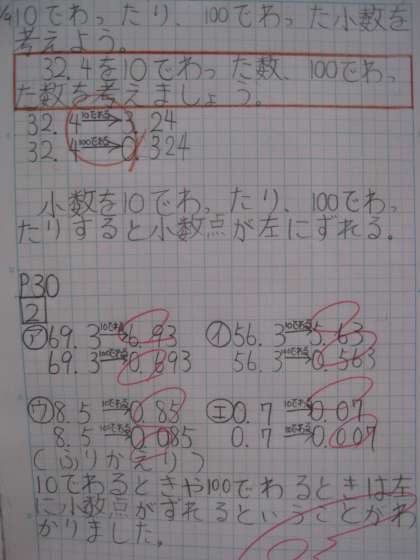 10でわったり、100でわった小数を
考えよう。
32.4を10でわった数、100でわっ
た数を考えましょう。
32.4 10でわる→ 3.24
32.4 100でわる→ 0.324
小数を10でわったり、100でわっ
たりすると小数点が左にずれる。
P30
2
㋐69.3 10でわる→ 6.93 ㋑56.3 10でわる→ 5.63
69.3 100でわる→ 0.693 56.3 100でわる→ 0.563
㋒8.5 10でわる→ 0.85 ㋓0.7 10でわる→ 0.07
8.5 100でわる→ 0.085 0.7 100でわる→ 0.007
(ふりかえり)
10でわるときや100でわるときは左
に小数点がずれるということがわ
かりました。